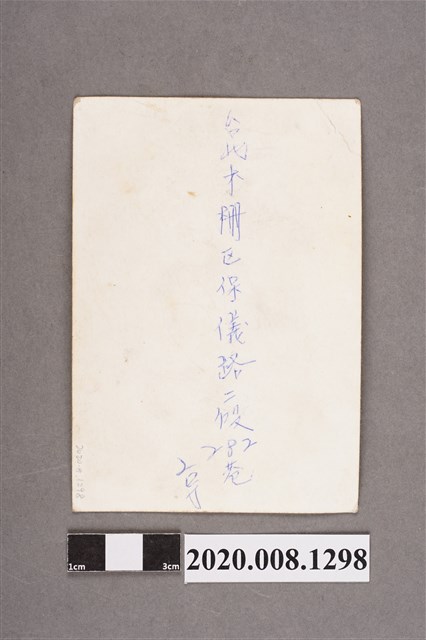 台北木柵區保儀路二段
282巷
2号
2020.008.1298
1cm
3cm
2020.008.1298